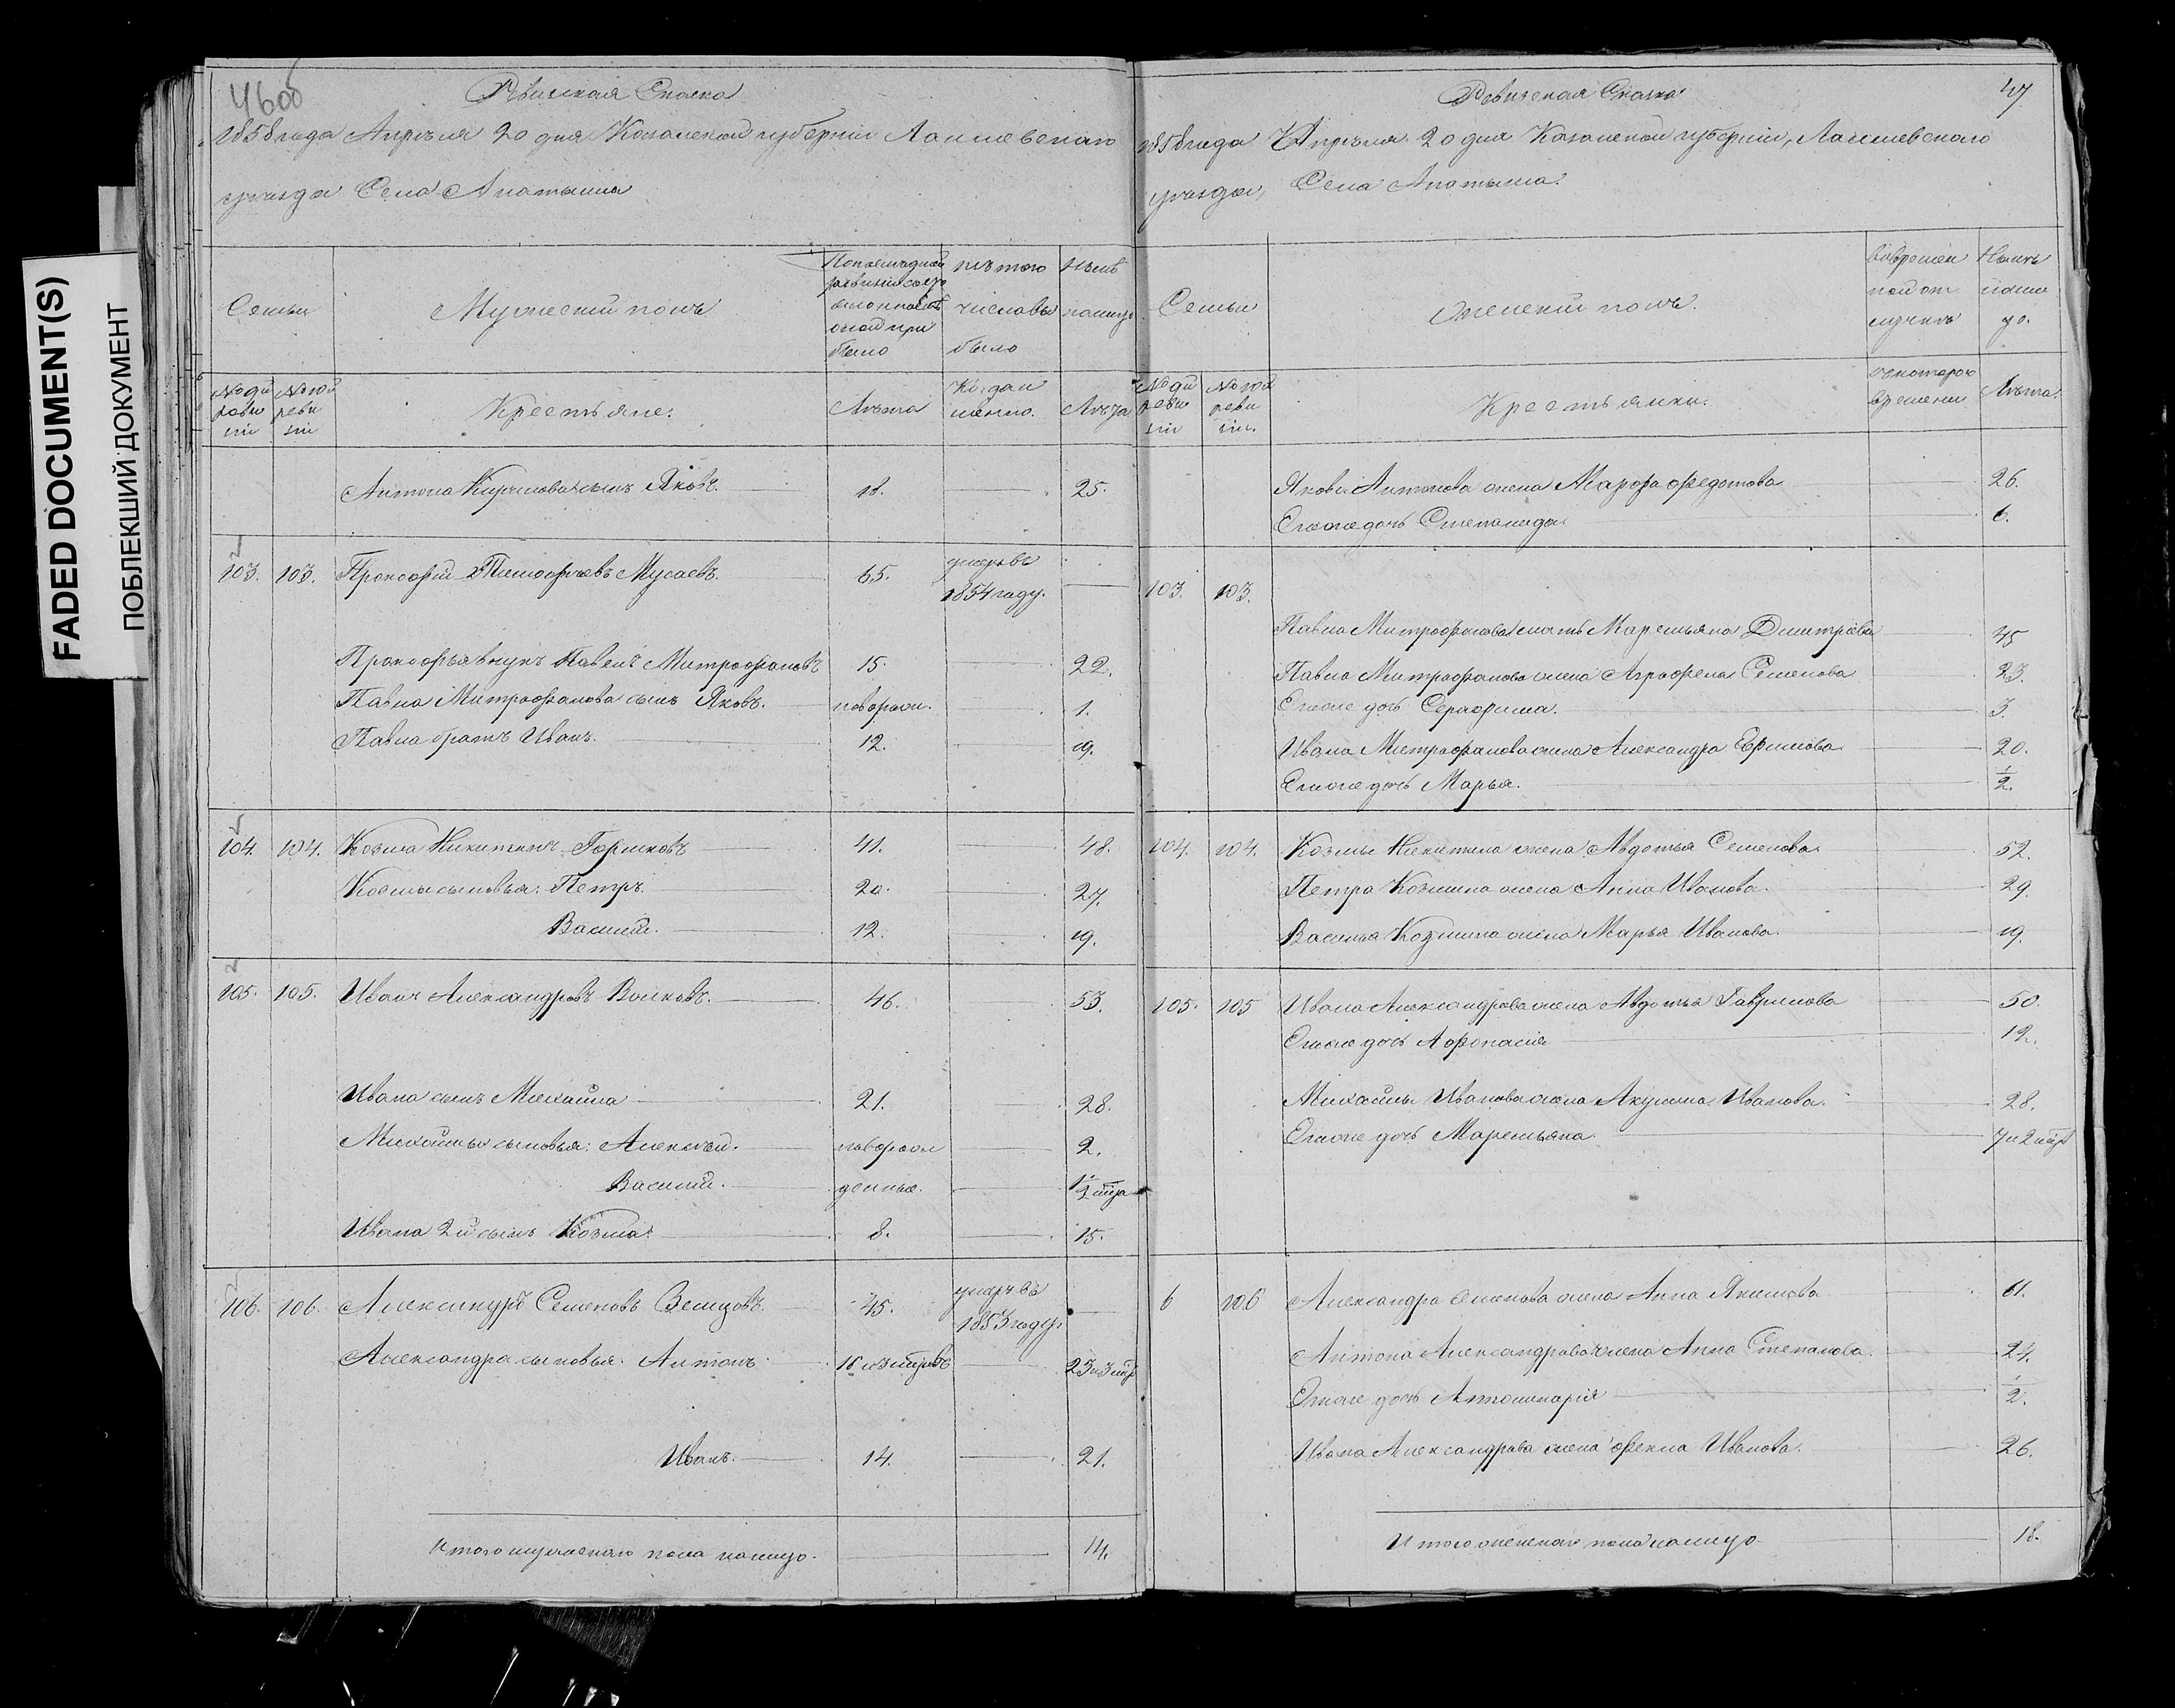 FADED DOCUMENT(S)
ПОБЛЕКШИЙ ДОКУМЕНТ
Ревизская Сказка
1858 года Апреля 20 дня Казанской губернии Лаишевского
уезда Села Анатыша
Семьи
Мужеский полъ
По последней ревизии состояло и после оной прибыло
изъ того числа выбыло
Ныне налицо
№ 9й ревизіи
№ 10й ревизіи
Крестьяне.
Лета
Когда именно.
Лета
Антона Кирилова сынъ Яковъ. 18. 25.
103. 103. Прокофий Тимофеевъ Мусаевъ. 65. умеръ въ 1854 году.
Прокофья внукъ Павелъ Митрофановъ 15. 22.
Павла Митрофанова сынъ Яковъ. новорож. 1.
Павла братъ Иванъ. 12. 19.
104. 104. Козма Никитинъ Горшковъ 41. 48.
Козмы сыновья: Петръ 20. 27.
Василий. 12. 19.
105. 105. Иванъ Александровъ Волковъ. 46. 53.
Ивана сынъ Михайла 21. 28.
Михайлы сыновья: Алексей. новорож 2.
Василий. денные. 1/2
Ивана 2й сынъ Козма. 8. 15.
106. 106. Александръ Семеновъ 45. умеръ въ 1853 году.
Александра сыновья: Антонъ 16
Иванъ. 14. 21.
Итого мужескаго пола налицо. 14.
Ревизская Сказка 47
1858 года Апреля 20 дня Казанской губернии, Лаишевского
уезда, Села Анатыша.
Семьи
Женский полъ.
Во временной отлучке
Ныне налицо.
№ 9й ревизіи
№ 10й ревизіи.
Крестьянки.
с которого времени
Лета.
Якова Антонова жена Марфа Федотова 26.
Ево же дочь Степанида 6.
103. 103.
Павла Митрофанова мать Маремьяна Дмитріева 45
Павла Митрофанова жена Аграфена Семенова 23.
Ево же дочь Серафима. 3.
Ивана Митрофанова жена Александра Ефимова 20.
Ево же дочь Марья. 1/2.
104. 104. Козмы Никитина жена Авдотья Семенова 52.
Петра Козмина жена Анна Иванова. 29.
Василья Козмина жена Марья Иванова. 19.
105. 105 Ивана Александрова жена Авдотья Гаврилова 50.
Ево же дочь Афонасія 12.
Михайлы Иванова жена Акулина Иванова. 28.
Ево же дочь Маремьяна.
6 106 Александра Семенова жена Анна Якимова 61.
Антона Александрова жена Анна Степанова. 24.
Ево же дочь 1/2.
Ивана Александрова жена Фекла Иванова. 26.
Итого женского пола налицо 18.